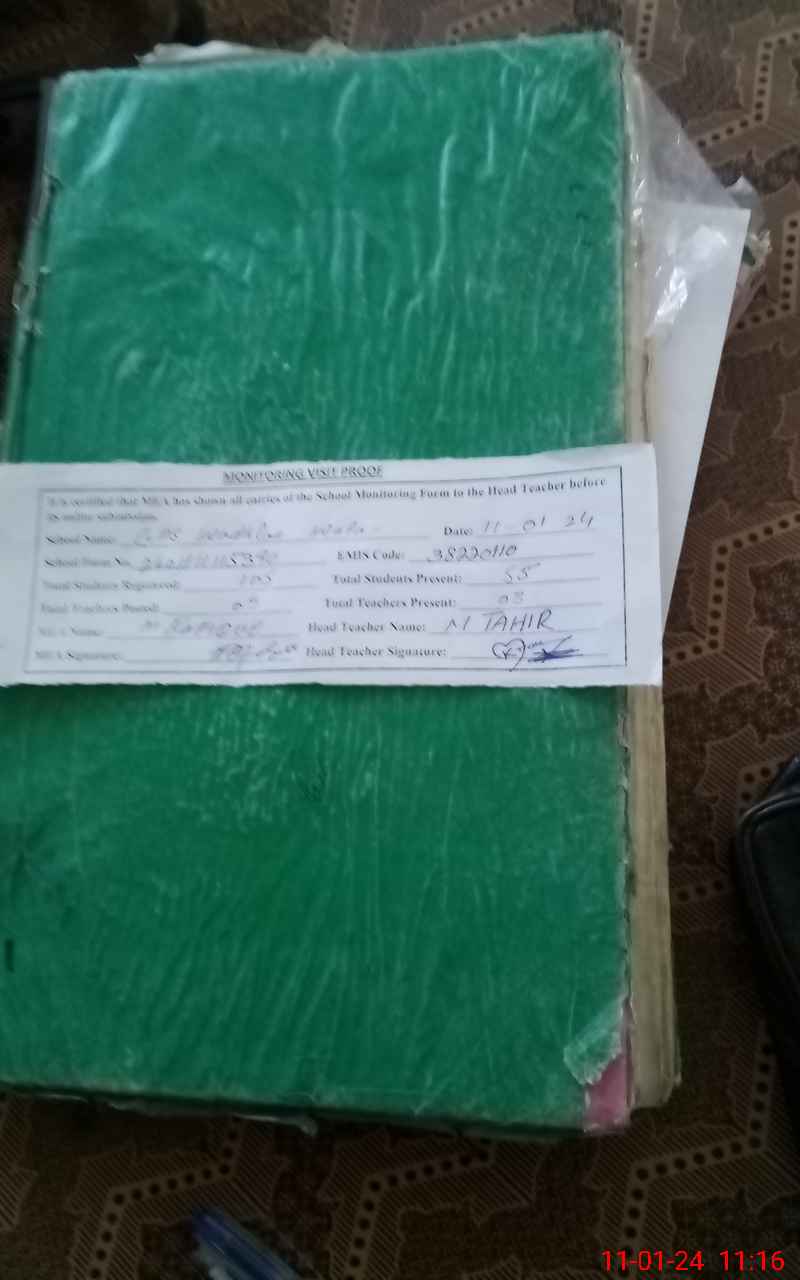 MONITORING VISIT PROOF
It is certified that MEA has shown all entries of the School Monitoring Form to the Head Teacher before
its online submission.
School Name: GPS Date: 11-01-24
School Form No. EMIS Code: 38220110
Total Students Registered: 103 Total Students Present: 85
Total Teachers Posted: 03 Total Teachers Present: 03
MEA Name: M Head Teacher Name: M TAHIR
MEA Signature: Head Teacher Signature:
11-01-24 11:16